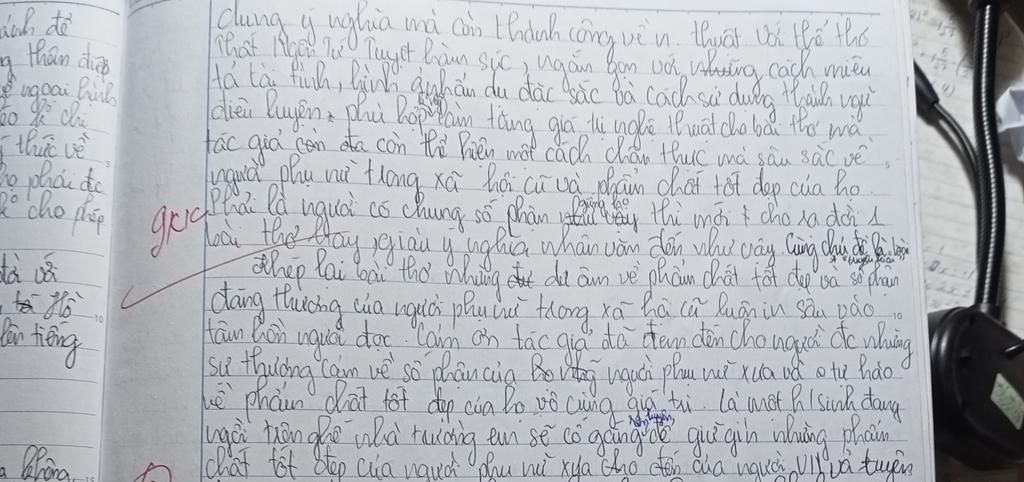 ánh để
thân điệp
ngoại hình
thức về
phải đc
cho phép
Hồ
lên tiếng
không
dung ý nghĩa mà còn thành công về n thuật với thể thơ
Thất Ngôn Tứ Tuyệt hàm súc, ngắn gọn với những cách miêu
tả tài tình, hình ảnh ẩn dụ đặc sắc và cách sử dụng thành ngữ
điêu luyện, phù hợp làm tăng giá trị nghệ thuật cho bài thơ mà
tác giả còn đã còn thể hiện một cách chân thực mà sâu sắc về
người phụ nữ trong xã hội cũ và phẩm chất tốt đẹp của họ.
gknc Phải là người có chung số phận thì mới cho ra đời 1
bài thơ hay, giàu ý nghĩa nhân văn đến như vậy. Cùng chủ đề
Khép lại bài thơ những dư âm về phẩm chất tốt đẹp và số phận
đáng thương của người phụ nữ trong xã hội cũ luôn in sâu vào
tâm hồn người đọc. Cảm ơn tác giả đã đem đến cho người đc những
sự thương cảm về số phận của người phụ nữ xưa và tự hào
về phẩm chất tốt đẹp của họ vô cùng giá trị. Là một h/sinh đang
ngồi trên ghế nhà trường em sẽ cố gắng rèn luyện để giữ gìn những phẩm
chất tốt đẹp của người phụ nữ xưa của người VN và tuyên